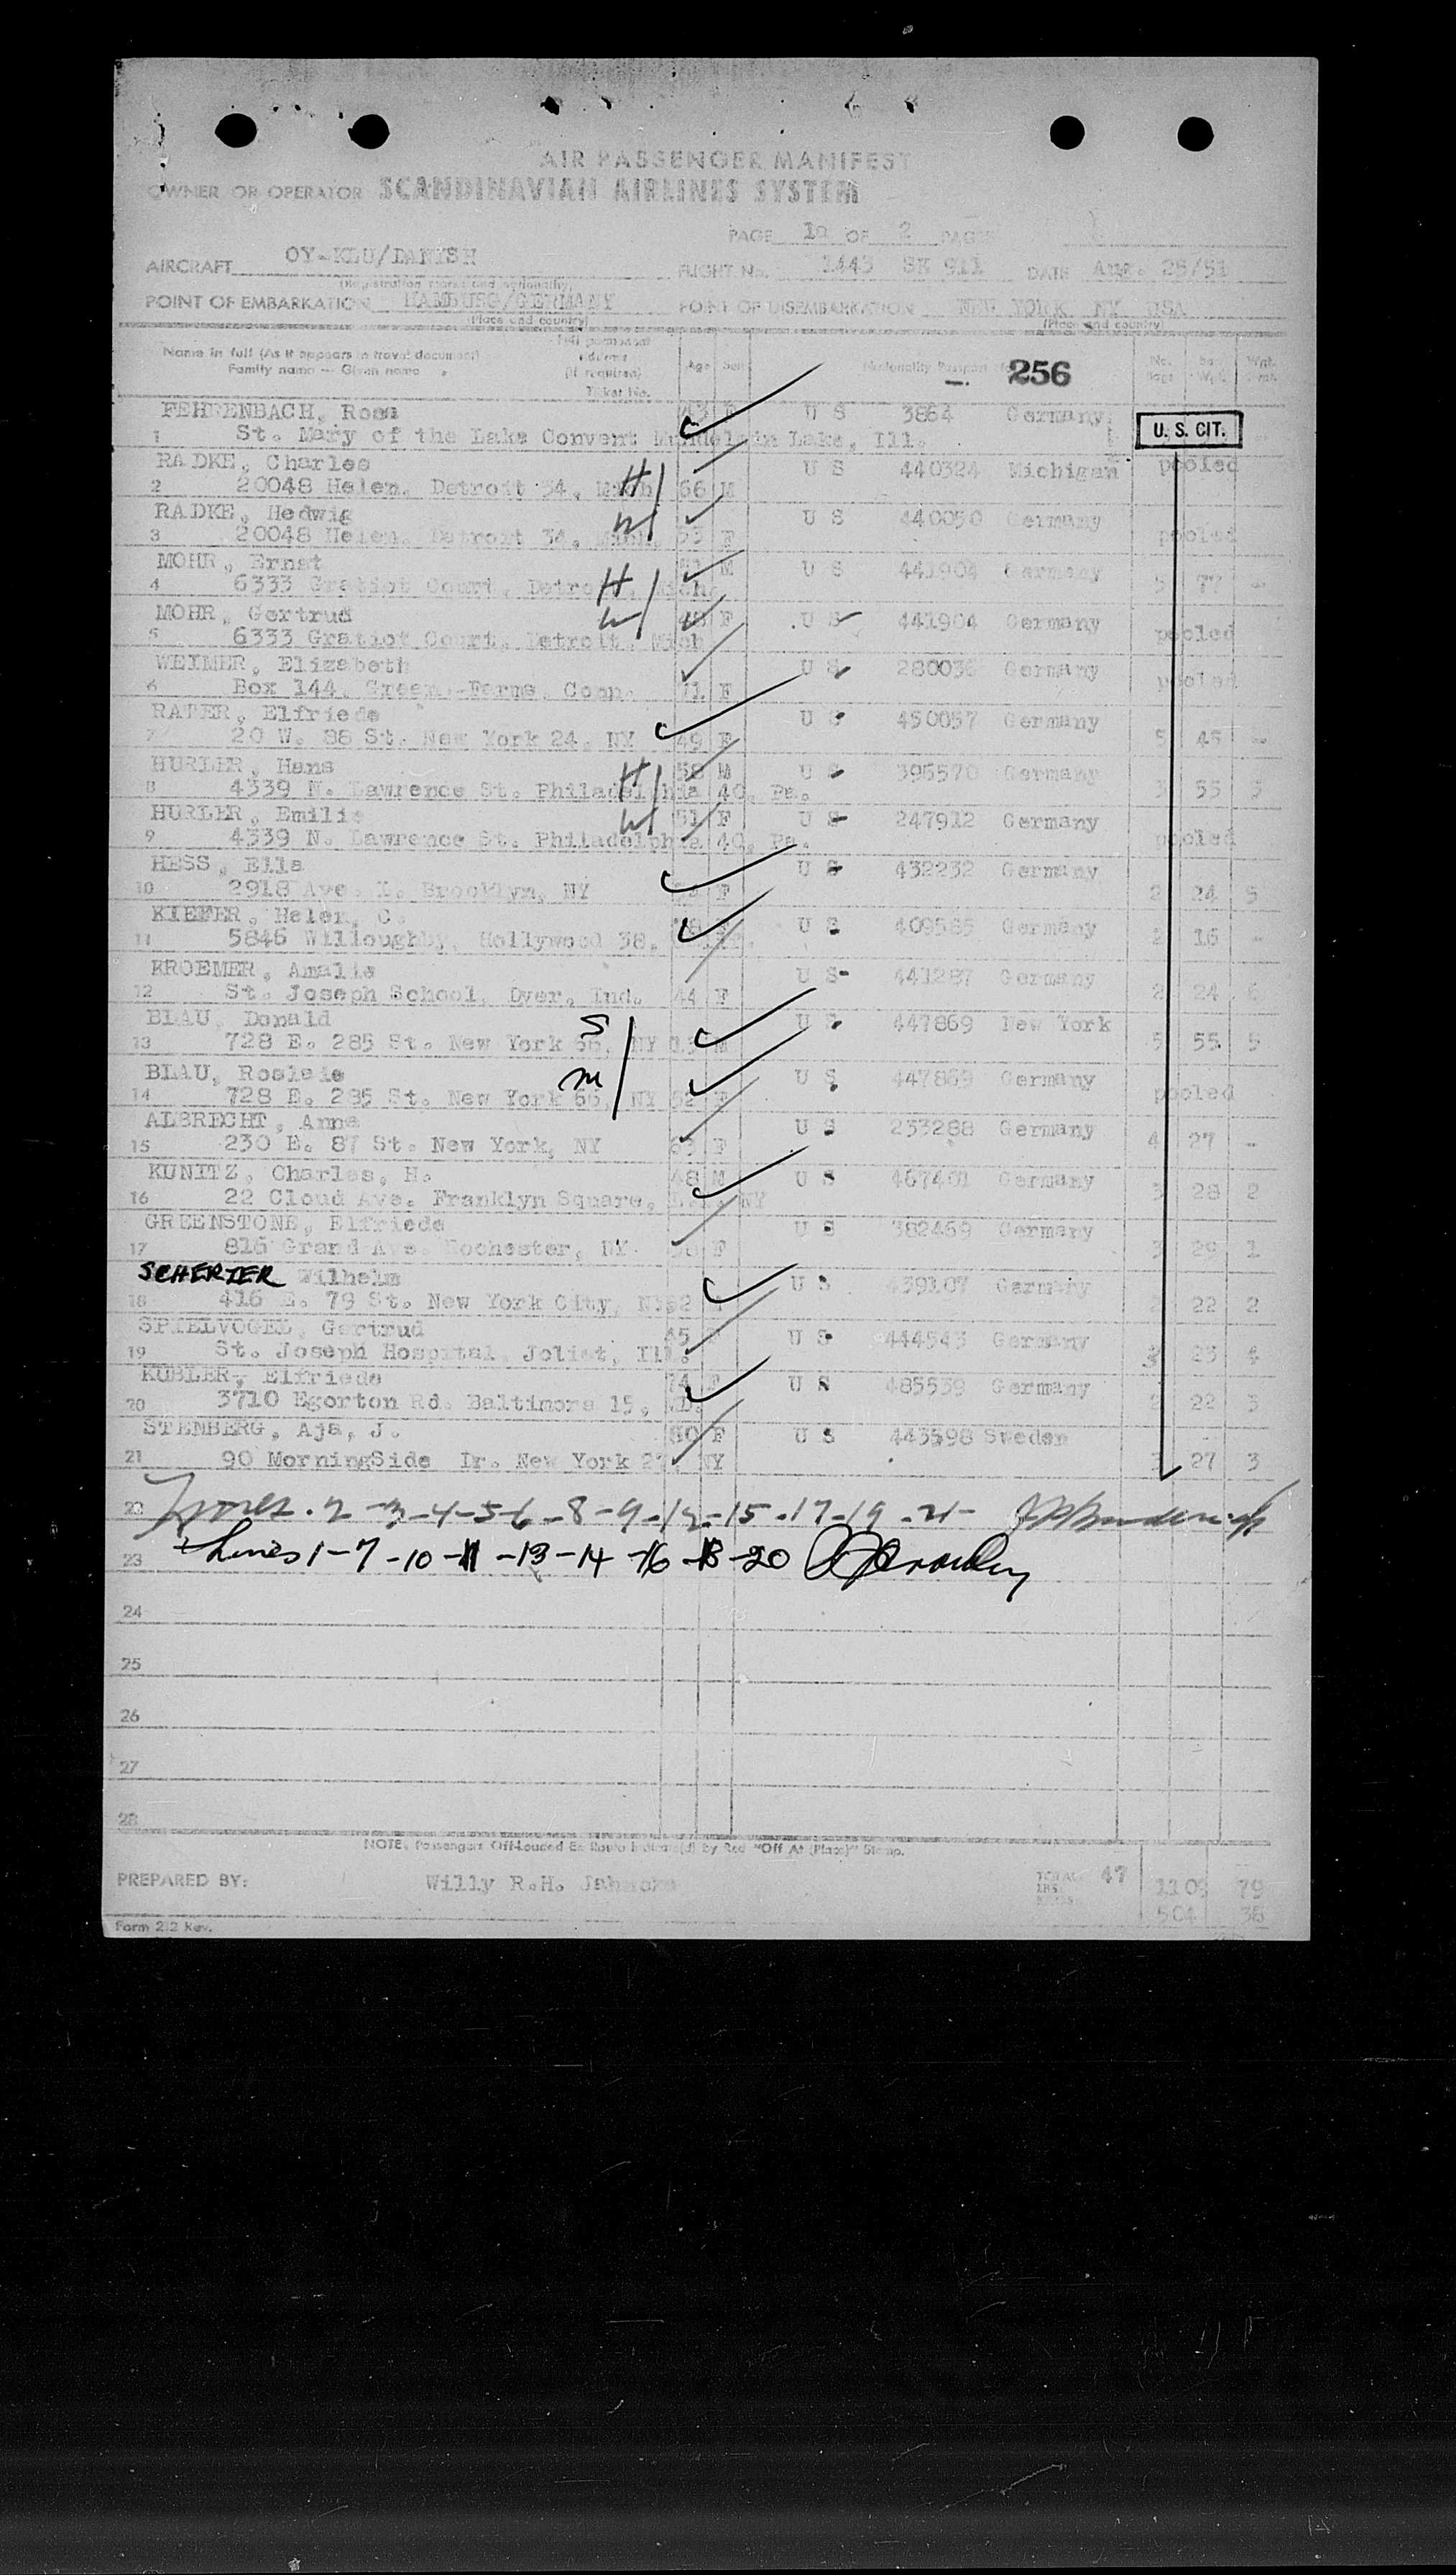 AIR PASSENGER MANIFEST
OWNER OR OPERATOR SCANDINAVIAN AIRLINES SYSTEM
PAGE 1a OF 2 PAGES
AIRCRAFT OY-KLU/DANISH FLIGHT No. 1443 SK 911 DATE Aug. 25/51
(Registration marks and nationality)
POINT OF EMBARKATION HAMBURG/GERMANY POINT OF DISEMBARKATION NEW YORK NY USA
(Place and country) (Place and country)
Name in full (As it appears in travel document) Full permanent
Family name — Given name address (if required) Age Sex Nationality Passport 256 No. Bags Wgt.
Ticket No.
FEHRENBACH, Rosa 43 F U S 3864 Germany U. S. CIT.
1 St. Mary of the Lake Convent Lake, Ill.
RADKE, Charles H U S 440324 Michigan pooled
2 20048 Helen, Detroit 34, Mich 66 M
RADKE, Hedwig W U S 440050 Germany
3 20048 Helen, Detroit 34, Mich. 53 F pooled
MOHR, Ernst 51 M U S 441904 Germany
4 6333 Gratiot Court, Detroit, Mich. H 5 77 -
MOHR, Gertrud W F U S 441904 Germany
5 6333 Gratiot Court, Detroit, Mich pooled
WEIMER, Elizabeth U S 280036 Germany
6 Box 144, Green Farms, Conn. 71 F pooled
RATER, Elfriede U S 450057 Germany
7 20 W. 88 St. New York 24, NY 49 F 5 45 -
HURLER, Hans H 58 M U S 396570 Germany
8 4339 N. Lawrence St. Philadelphia 40, Pa. 3 55 3
HURLER, Emilie W 51 F U S 247912 Germany
9 4339 N. Lawrence St. Philadelphia 40, Pa. pooled
HESS, Ella U S 432232 Germany
10 2918 Ave. I. Brooklyn, NY F 2 24 5
KIEFER, Helen, C. U S 409585 Germany
11 5846 Willoughby, Hollywood 38, 2 16 -
KROEMER, Amalie U S 441287 Germany
12 St. Joseph School, Dyer, Ind. 44 F 2 24 6
BLAU, Donald S U S 447869 New York
13 728 E. 285 St. New York 66, NY 13 M 5 55 5
BLAU, Rosleie m U S 447869 Germany
14 728 E. 285 St. New York 66, NY 52 F pooled
ALBRECHT, Anna U S 233288 Germany
15 230 E. 87 St. New York, NY 63 F 4 27 -
KUNITZ, Charles, H. 48 M U S 467401 Germany
16 22 Cloud Ave. Franklyn Square, L.I. NY 3 28 2
GREENSTONE, Elfriede U S 382469 Germany
17 816 Grand Ave. Rochester, NY. F 3 29 1
SCHERZER Wilhelm U S 439107 Germany
18 416 E. 79 St. New York City, NY 2 22 2
SPIELVOGEL, Gertrud 45 F U S 444543 Germany
19 St. Joseph Hospital, Joliet, Ill. 23 4
KUBLER, Elfriede 74 F U S 485539 Germany
20 3710 Egorton Rd. Baltimore 15, MD. 2 22 3
STENBERG, Aja, J. 50 F U S 443598 Sweden
21 90 MorningSide Dr. New York 27, NY 3 27 3
22 Lines. 2-3-4-5-6-8-9-12-15-17-19-21-
23 Lines 1-7-10-11-13-14-16-18-20
24
25
26
27
28
NOTE: Passengers Off-Loaded En Route Indicated by Red "Off At (Place)" Stamp.
PREPARED BY: Willy R.H. TOTAL 47 1109 79
LBS. KILOS 504 36
Form 212 Rev.